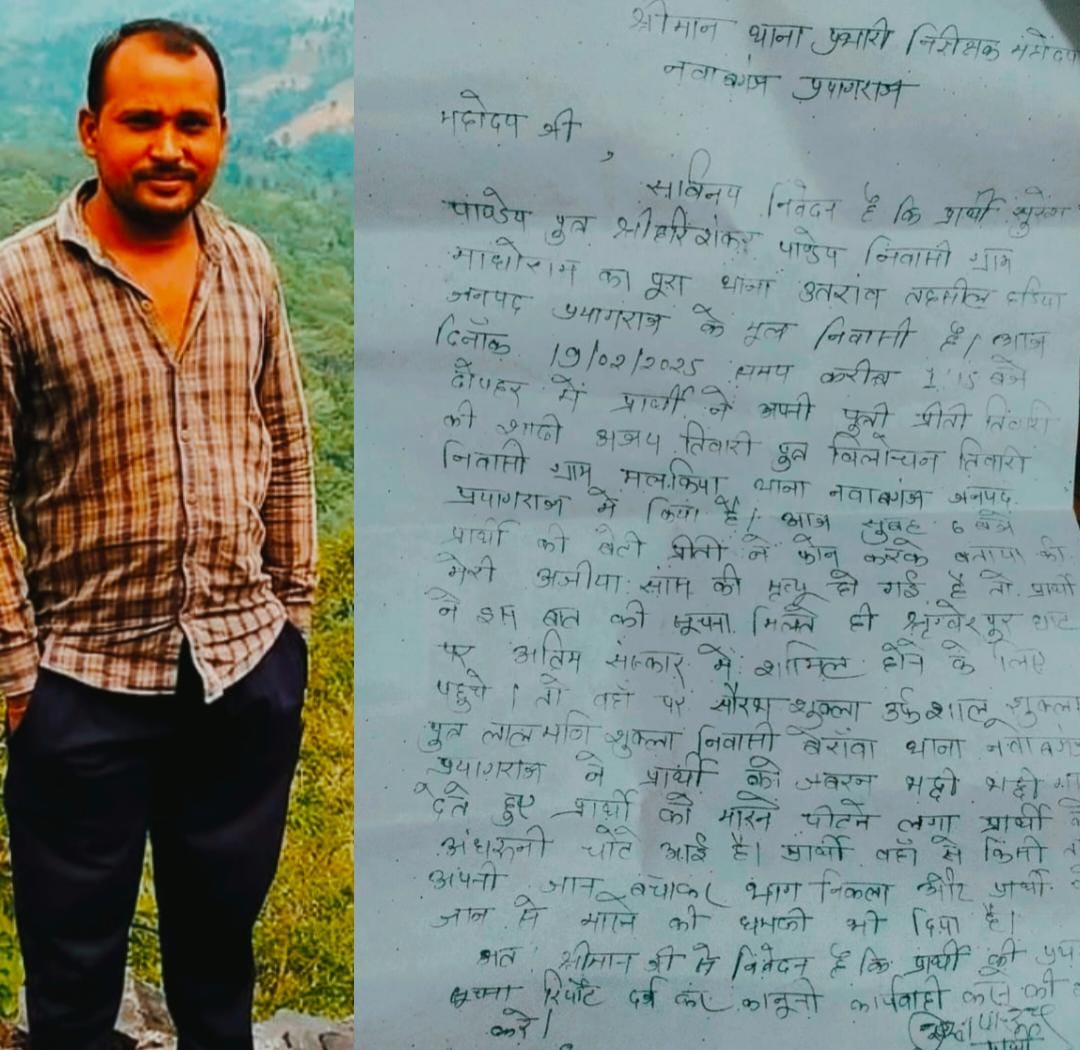 श्रीमान थाना प्रभारी निरीक्षक महोदय
नवाबगंज प्रयागराज
महोदय जी ,
सविनय निवेदन है कि प्रार्थी
पाण्डेय पुत्र श्री हरिशंकर पाण्डेय निवासी ग्राम
माधोराम का पूरा थाना उतरांव तहसील हंडिया
जनपद प्रयागराज के मूल निवासी है। आज
दिनाँक 19/02/2025 समय करीब 1:15 बजे
दोपहर में प्रार्थी ने अपनी पुत्री प्रीती तिवारी
की शादी अजय तिवारी पुत्र त्रिलोचन तिवारी
निवासी ग्राम मलकिया थाना नवाबगंज जनपद
प्रयागराज में किया है। आज सुबह 6 बजे
प्रार्थी की बेटी प्रीती ने फोन करके बताया की
मेरी अजीया सास की मृत्यू हो गई है तो प्रार्थी
ने इस बात की सूचना मिलते ही श्रृंग्वेरपुर घाट
पर अंतिम संस्कार में शामिल होने के लिए
पहुचे। तो वहाँ पर सौरभ शुक्ला उर्फ शालू शुक्ला
पुत्र लालमणि शुक्ला निवासी बेरांवा थाना नवाबगंज
प्रयागराज ने प्रार्थी को जबरन भद्दी भद्दी
देते हुए प्रार्थी को मारने पीटने लगा प्रार्थी
अंधरूनी चोटे आई है। प्रार्थी वहाँ से किसी
अपनी जान बचाकर भाग निकला और प्रार्थी
जान से मारने की धमकी भी दिया है।
अतः श्रीमान जी से निवेदन है कि प्रार्थी की
सूचना रिपोर्ट दर्ज कर कानूनी कार्यवाही करने की
करें।
प्रार्थी